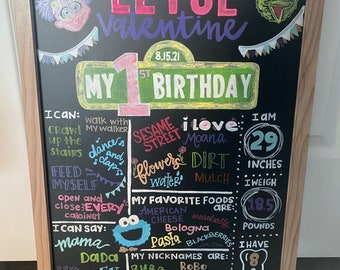 Valentine
8.15.21
MY 1ST BIRTHDAY
I CAN:
CRAWL
UP THE
STAIRS
FEED
MYSELF
OPEN and
close EVERY
cabinet!
walk with
my walker
dance
and
clap
SESAME
STREET
Flowers
to
WATER
i love:
Moana
DIRT
MULCH
I AM
29
INCHES
I WEIGH
185
POUNDS
I HAVE
8
MY FAVORITE FOODS ARE:
AMERICAN
CHEESE
Pasta
Bologna
meatballs
BLACKBERRIES
I CAN SAY:
mama
DADA
MY NICKNAMES ARE:
BUBA
ROBO